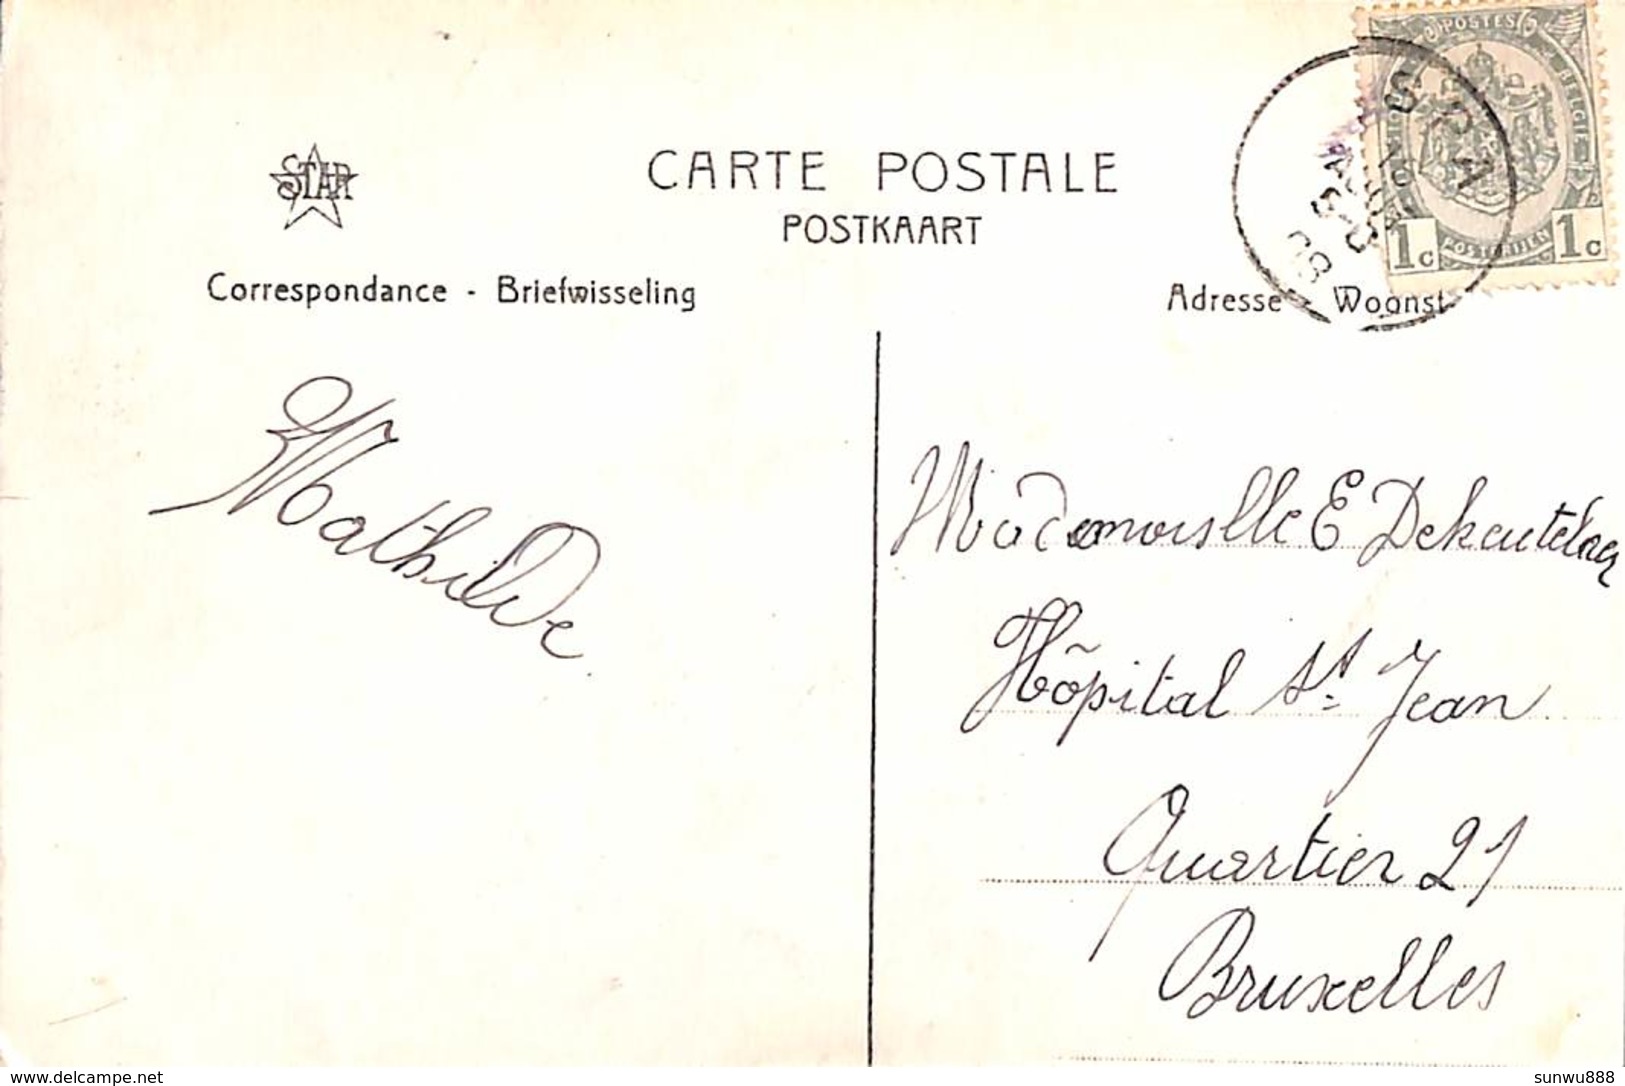 STAR
CARTE POSTALE
POSTKAART
Correspondance - Briefwisseling
Adresse - Woonst
POSTES
BELGIE
1c POSTERIJEN 1c
SPA
08
Mathilde
Mademoiselle E Dekeutelaer
Hôpital St. Jean
Quartier 21
Bruxelles
www.delcampe.net
sunwu888